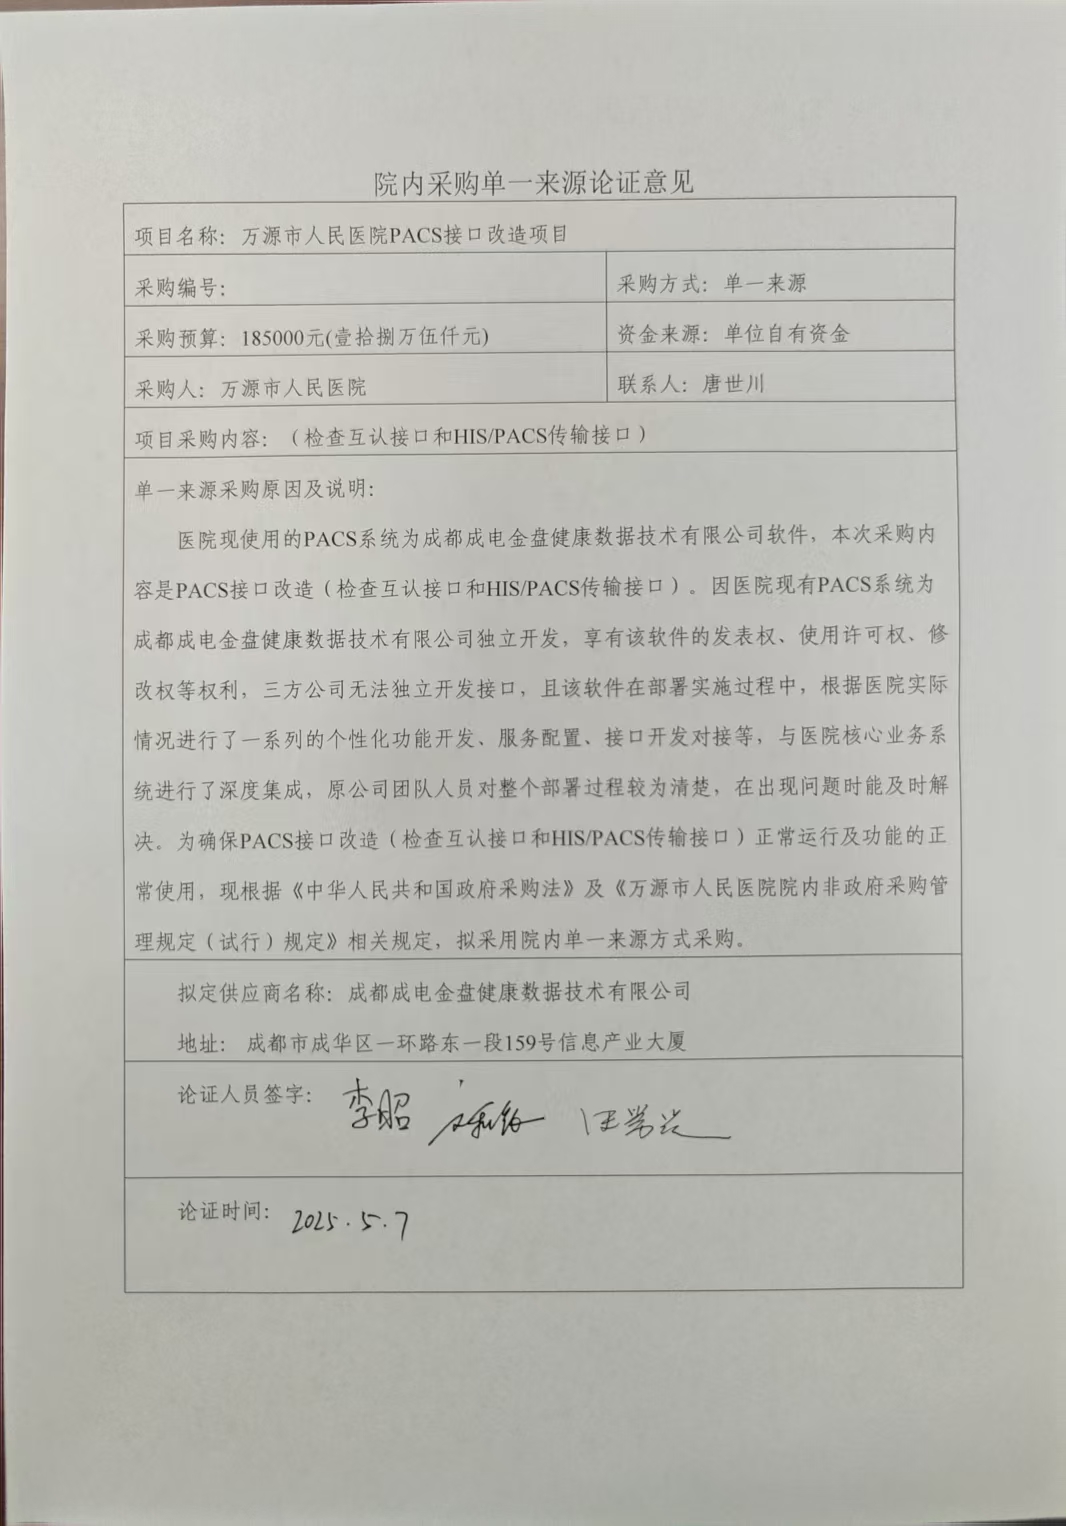 院内采购单一来源论证意见
项目名称：万源市人民医院PACS接口改造项目
采购编号：
采购方式：单一来源
采购预算：185000元(壹拾捌万伍仟元)
资金来源：单位自有资金
采购人：万源市人民医院
联系人：唐世川
项目采购内容：（检查互认接口和HIS/PACS传输接口）
单一来源采购原因及说明：
医院现使用的PACS系统为成都成电金盘健康数据技术有限公司软件，本次采购内
容是PACS接口改造（检查互认接口和HIS/PACS传输接口）。因医院现有PACS系统为
成都成电金盘健康数据技术有限公司独立开发，享有该软件的发表权、使用许可权、修
改权等权利，三方公司无法独立开发接口，且该软件在部署实施过程中，根据医院实际
情况进行了一系列的个性化功能开发、服务配置、接口开发对接等，与医院核心业务系
统进行了深度集成，原公司团队人员对整个部署过程较为清楚，在出现问题时能及时解
决。为确保PACS接口改造（检查互认接口和HIS/PACS传输接口）正常运行及功能的正
常使用，现根据《中华人民共和国政府采购法》及《万源市人民医院院内非政府采购管
理规定（试行）规定》相关规定，拟采用院内单一来源方式采购。
拟定供应商名称：成都成电金盘健康数据技术有限公司
地址： 成都市成华区一环路东一段159号信息产业大厦
论证人员签字： 李昭
论证时间： 2025.5.7